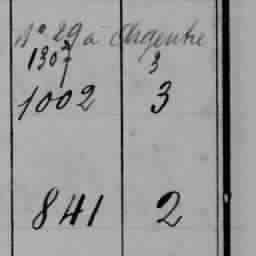 N° 29 a Argentré
1307 3
1002 3
841 2